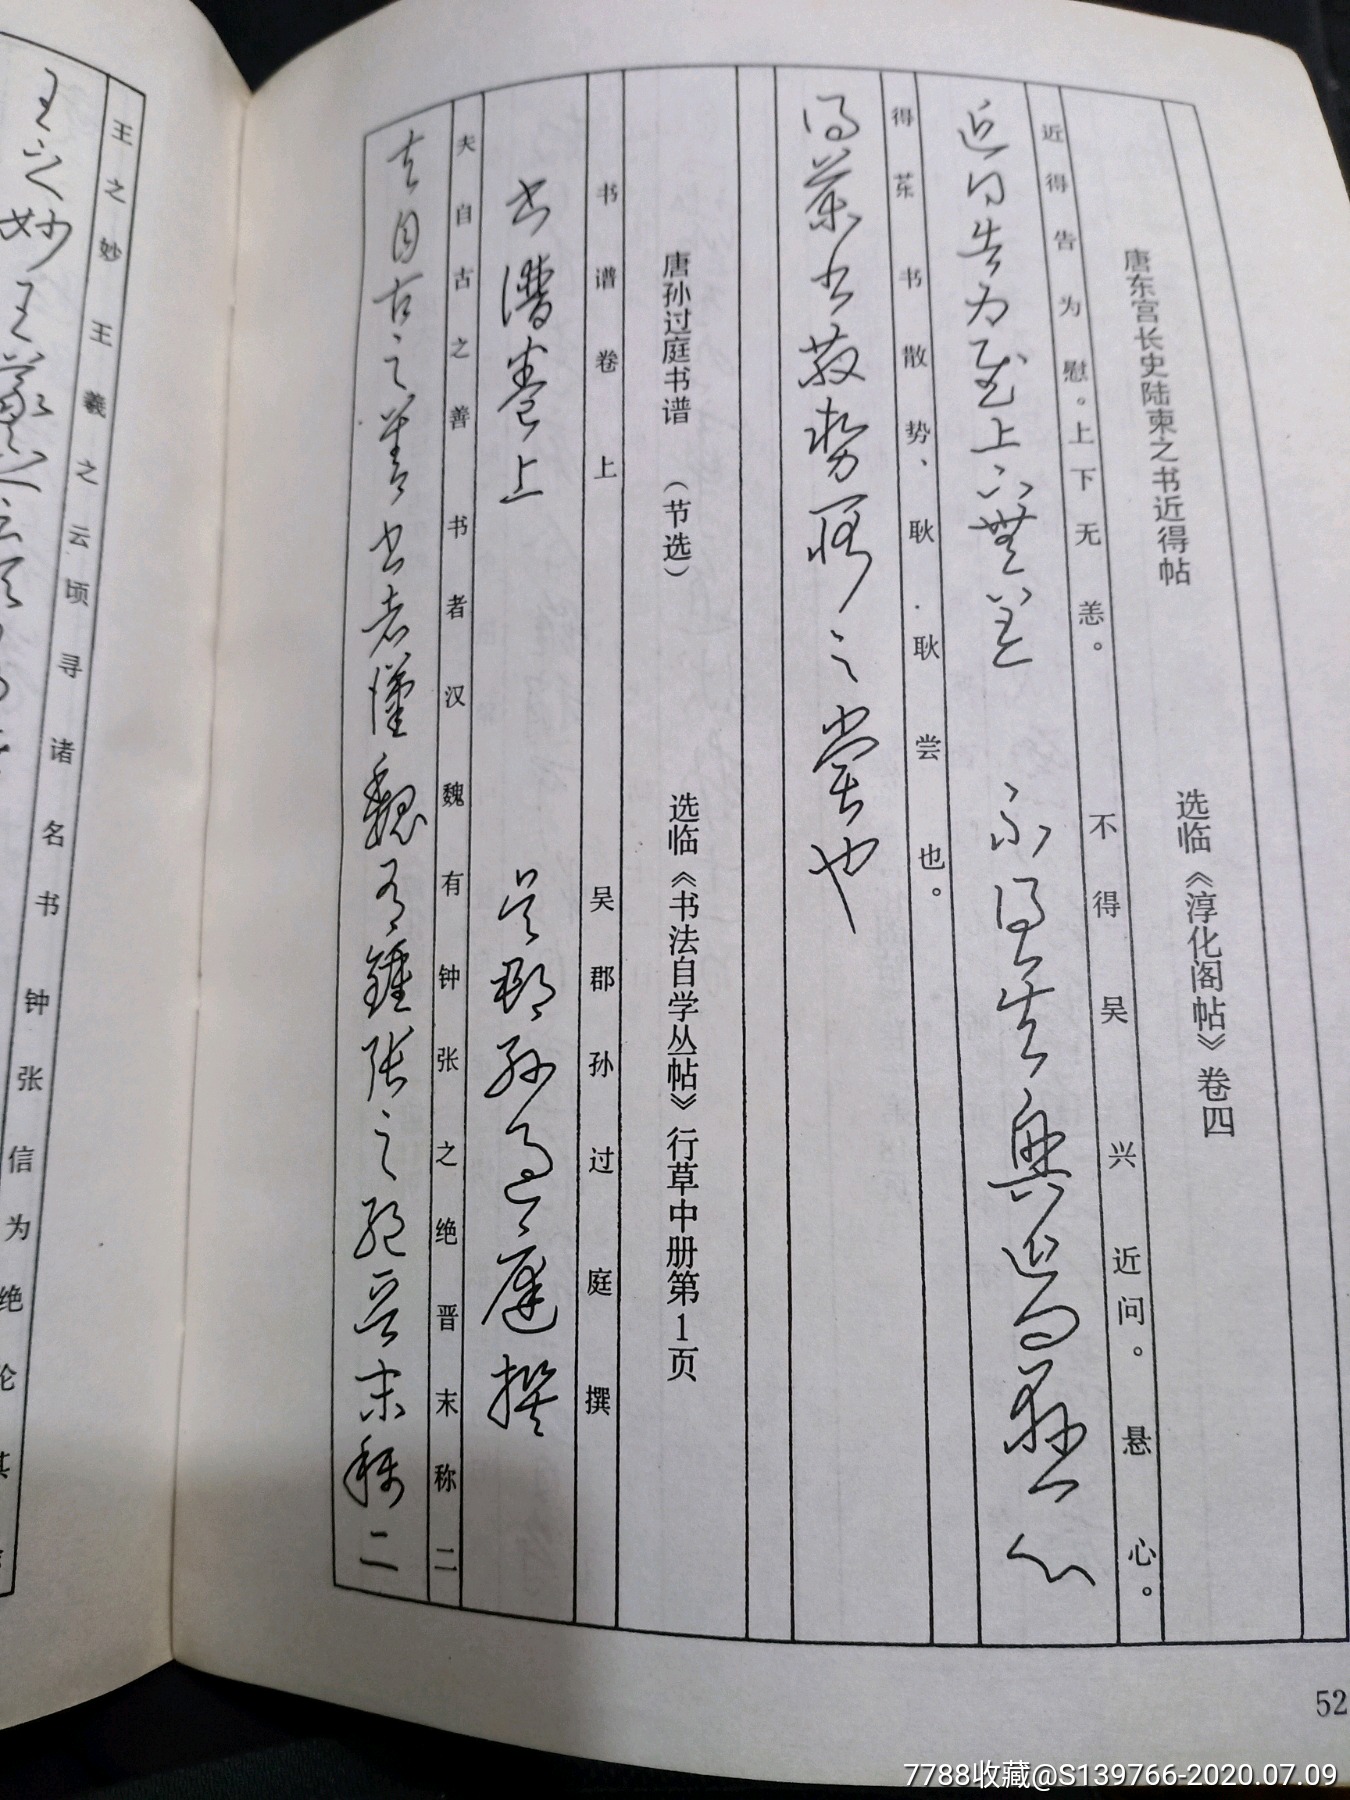 唐东宫长史陆柬之书近得帖 选临《淳化阁帖》卷四
近得告为慰。上下无恙。 不得吴兴近问。悬心。
近得告为慰上下無恙 不得吴興近问懸心
得茱书散势、耿·耿尝也。
唐孙过庭书谱 (节选) 选临《书法自学丛帖》行草中册第1页
书谱卷上 吴郡孙过庭撰
书譜卷上 吴郡孙过庭撰
夫自古之善书者汉魏有钟张之绝晋末称二
夫自古之善书者漢魏有鍾张之绝晋末称二
王之妙王羲之云顷寻诸名书钟张信为绝论其
王之妙王羲之云
52
7788收藏@S139766-2020.07.09